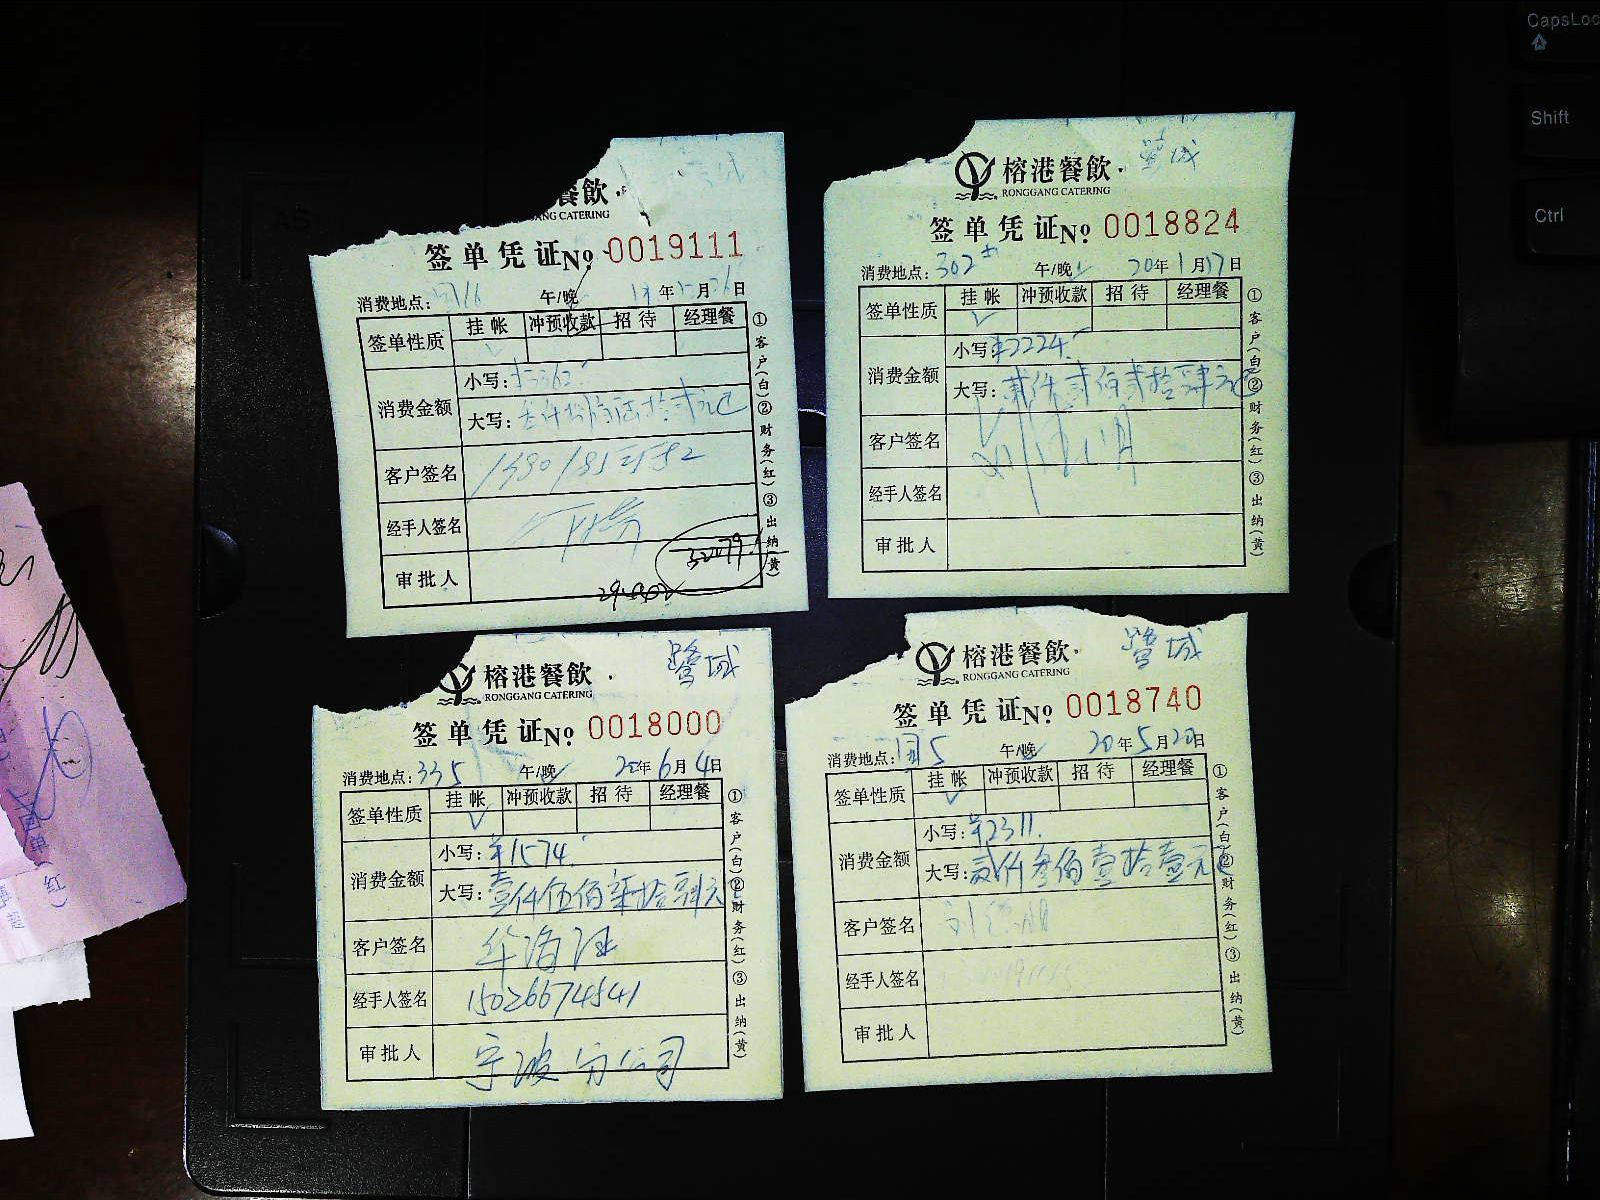 餐飲
GANG CATERING
签单凭证 No 0019111
消费地点: 午/晚 年 月 26 日
签单性质 挂帐 冲预收款 招待 经理餐
消费金额 小写:
大写:
客户签名
经手人签名
审批人
32079.
①客户(白)②财务(红)③出纳(黄)
榕港餐飲
RONGGANG CATERING
签单凭证 No 0018824
消费地点: 302 午/晚 20年1月17日
签单性质 挂帐 冲预收款 招待 经理餐
✓
消费金额 小写: ¥2224.
大写: 贰仟贰佰贰拾肆元
客户签名
经手人签名
审批人
①客户(白)②财务(红)③出纳(黄)
榕港餐飲
RONGGANG CATERING
鹭城
签单凭证 No 0018000
消费地点: 335 午/晚 20年6月4日
签单性质 挂帐 冲预收款 招待 经理餐
✓
消费金额 小写: ¥1574.
大写: 壹仟伍佰柒拾肆元
客户签名
经手人签名 15026674541
审批人 宁波分公司
①客户(白)②财务(红)③出纳(黄)
榕港餐飲
RONGGANG CATERING
鹭城
签单凭证 No 0018740
消费地点: 园5 午/晚 20年5月20日
签单性质 挂帐 冲预收款 招待 经理餐
✓
消费金额 小写: ¥2311.
大写: 贰仟叁佰壹拾壹元
客户签名
经手人签名
审批人
①客户(白)②财务(红)③出纳(黄)
CapsLoc
Shift
Ctrl